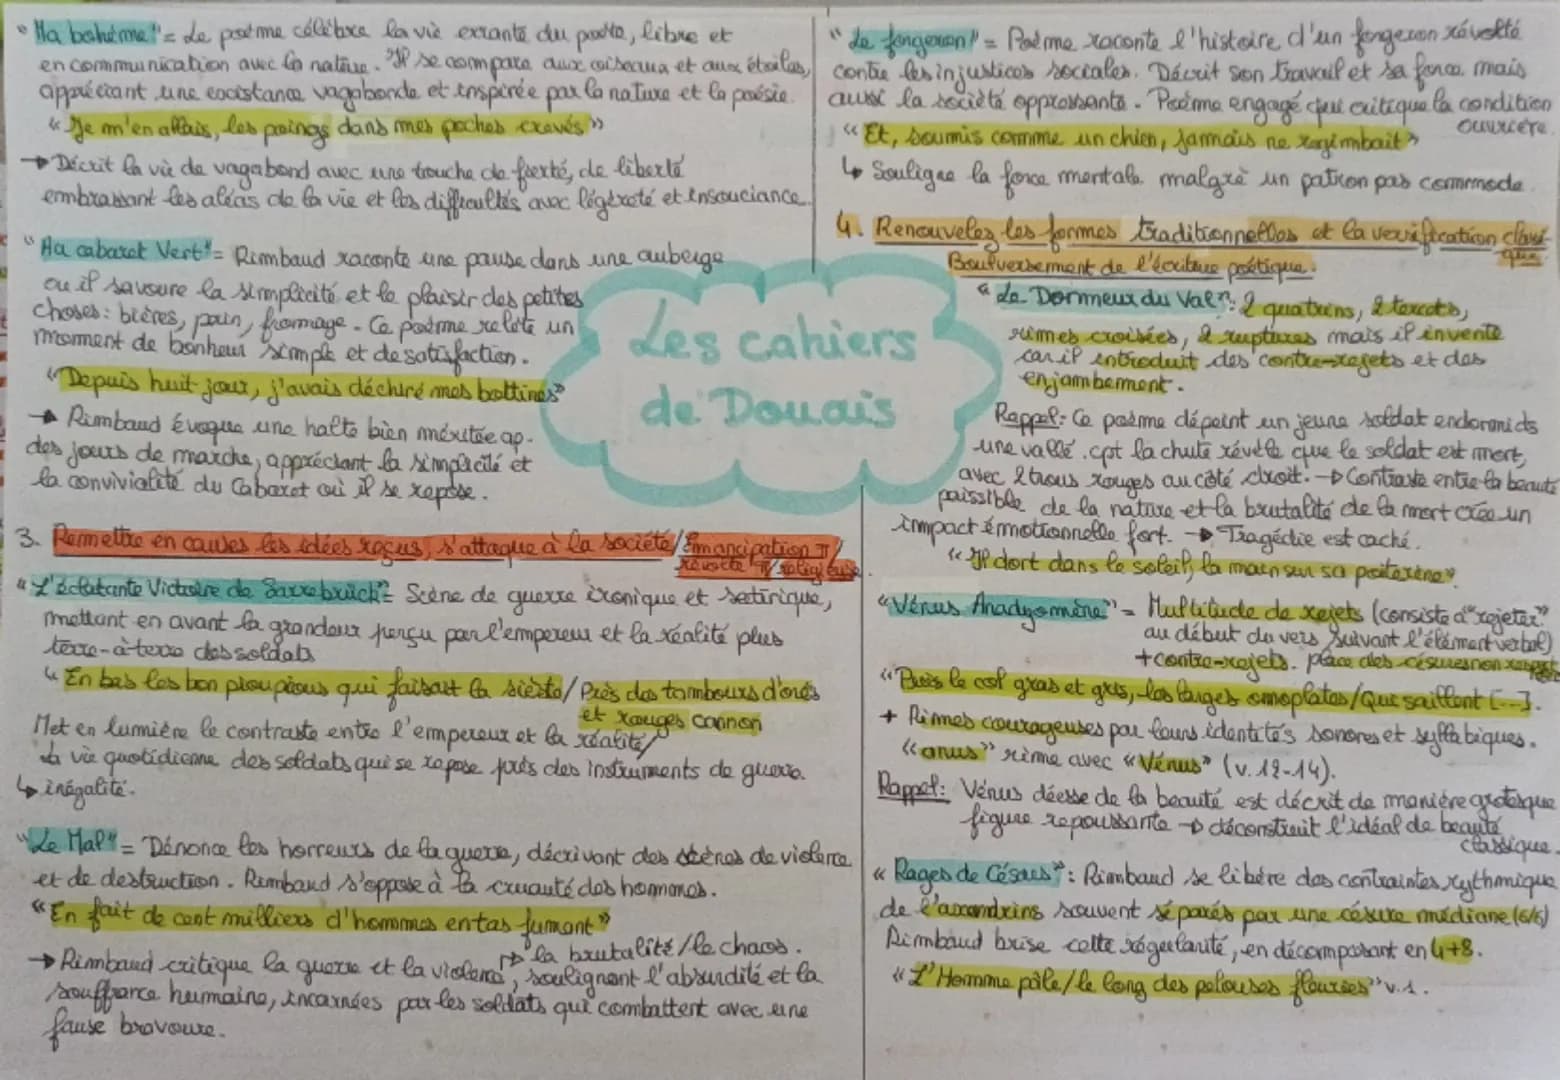 "Ma bohème" = Le poème célèbre la vie errante du poète, libre et
en communication avec la nature. Il se compare aux oiseaux et aux étoiles,
appréciant une existance vagabonde et inspirée par la nature et la poésie.
« Je m'en allais, les poings dans mes poches crevés »
→ Décrit la vie de vagabond avec une touche de fierté, de liberté
embrassant les aléas de la vie et les difficultés avec légèreté et insouciance.
"Au cabaret Vert" = Rimbaud raconte une pause dans une auberge
ou il savoure la simplicité et le plaisir des petites
choses: bières, pain, fromage. Ce poème reflète un
moment de bonheur simple et de satisfaction.
"Depuis huit jour, j'avais déchiré mes bottines"
→ Rimbaud évoque une halte bien méritée ap.
des jours de marche, appréciant la simplicité et
la convivialité du Cabaret où il se repose.
3. Remettre en causes les idées reçus, s'attaque à la société/Emancipation π/
révolte π/religieuse.
"L'éclatante Victoire de Sarrebrück" = Scène de guerre ironique et satirique,
mettant en avant la grandeur perçu par l'empereur et la réalité plus
terre-à-terre des soldats
"En bas les bon pioupious qui faisait la sieste/Près des tambours d'orés
et rouges cannon
Met en lumière le contraste entre l'empereur et la réalité/
la vie quotidienne des soldats qui se repose près des instruments de guerre.
↳ inégalité.
"Le Mal" = Dénonce les horreurs de la guerre, décrivant des scènes de violence
et de destruction. Rimbaud s'oppose à la cruauté des hommes.
"En fait de cent milliers d'hommes en tas fumant"
↱ la brutalité/le chaos.
→ Rimbaud critique la guerre et la violence, soulignant l'absurdité et la
souffrance humaine, incarnées par les soldats qui combattent avec une
fause bravoure.
Les cahiers
de Douais
"Le forgeron" = Poème raconte l'histoire d'un forgeron révolté
contre les injustices sociales. Décrit son travail et sa force mais
aussi la société oppressante. Poème engagé qui critique la condition
ouvrière.
« Et, soumis comme un chien, jamais ne regimbait »
↳ Souligne la force mentale malgré un patron pas commode.
4. Renouveler les formes traditionnelles et la versification classi-
que
Boulversement de l'écriture poétique.
"Le Dormeur du Val": 2 quatrins, 2 tercets,
rimes croisées, 2 ruptures mais il invente
car il introduit des contre-rejets et des
enjambement.
Rappel: Ce poème dépeint un jeune soldat endormi ds
une vallé. cpt la chute révèle que le soldat est mort,
avec 2 trous rouges au côté droit. → Contraste entre la beauté
paissible de la nature et la brutalité de la mort crée un
impact émotionnelle fort. → Tragédie est caché.
"Il dort dans le soleil, la main sur sa poitrine".
"Vénus Anadyomène" = Multitude de rejets (consiste à "rejeter"
au début du vers suivant l'élément verbal)
+ contre-rejets. place des césures non respect
"Puis le col gras et gris, les larges omoplates/Qui saillent [...].
+ Rimes courageuses par leurs identités sonores et syllabiques.
"anus" rime avec « Vénus » (v. 12-14).
Rappel: Vénus déesse de la beauté est décrit de manière grotesque
figure repoussante → déconstruit l'idéal de beauté
classique.
« Rages de Césars": Rimbaud se libère des contraintes rythmique
de l'axandrins souvent séparés par une césure médiane (6/6)
Rimbaud brise cette régularité, en décomposant en 4+8.
"L'Homme pâle/le long des pelouses fleuries" v.1.